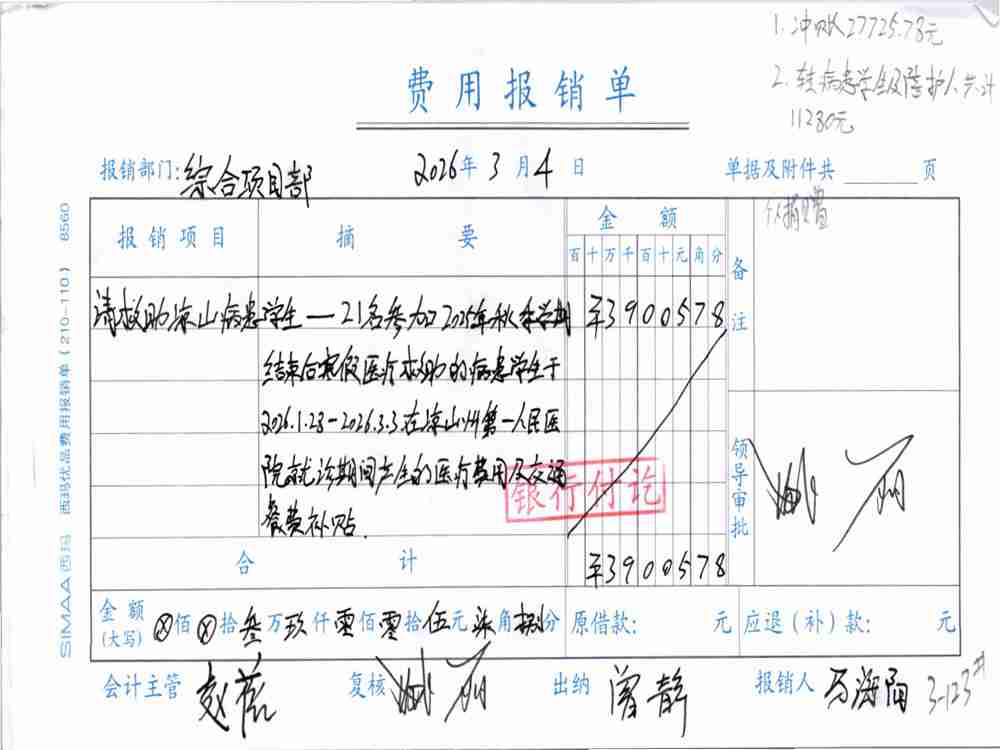 1.冲账27725.78元
2.转病患学生及陪护人共计
11280元
费用报销单
报销部门:综合项目部
2026年3月4日
单据及附件共 页
报销项目
摘 要
金 额
百十万千百十元角分
备注
个人捐赠
请救助凉山病患学生—21名参加2025年秋季学期
¥3900578
结束后寒假医疗救助的病患学生于
2026.1.28-2026.3.3.在凉山州第一人民医
院就诊期间产生的医疗费用及交通
餐费补贴.
银行付讫
领导审批
合 计
¥3900578
金额(大写) ⊗佰⊗拾叁万玖仟零佰零拾伍元柒角捌分
原借款: 元
应退(补)款: 元
会计主管
复核
出纳 曾静
报销人 马海阳
3-123#
SIMAA西玛 西玛优品费用报销单(210-110) 8560